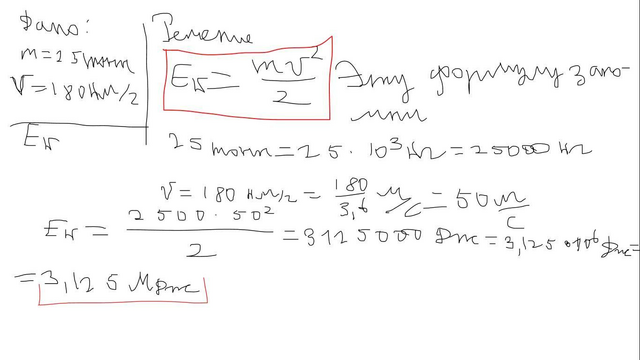 Дано:
m=25 тонн
V=180 км/ч
Eк
Решение
Eк = mv²/2 Эту формулу запомни
25 тонн = 25 · 10³ кг = 25000 кг
V = 180 км/ч = 180/3,6 м/с = 50 м/с
Eк = 2500·50²/2 = 3125000 Дж = 3,125·10⁶ Дж =
= 3,125 МДж